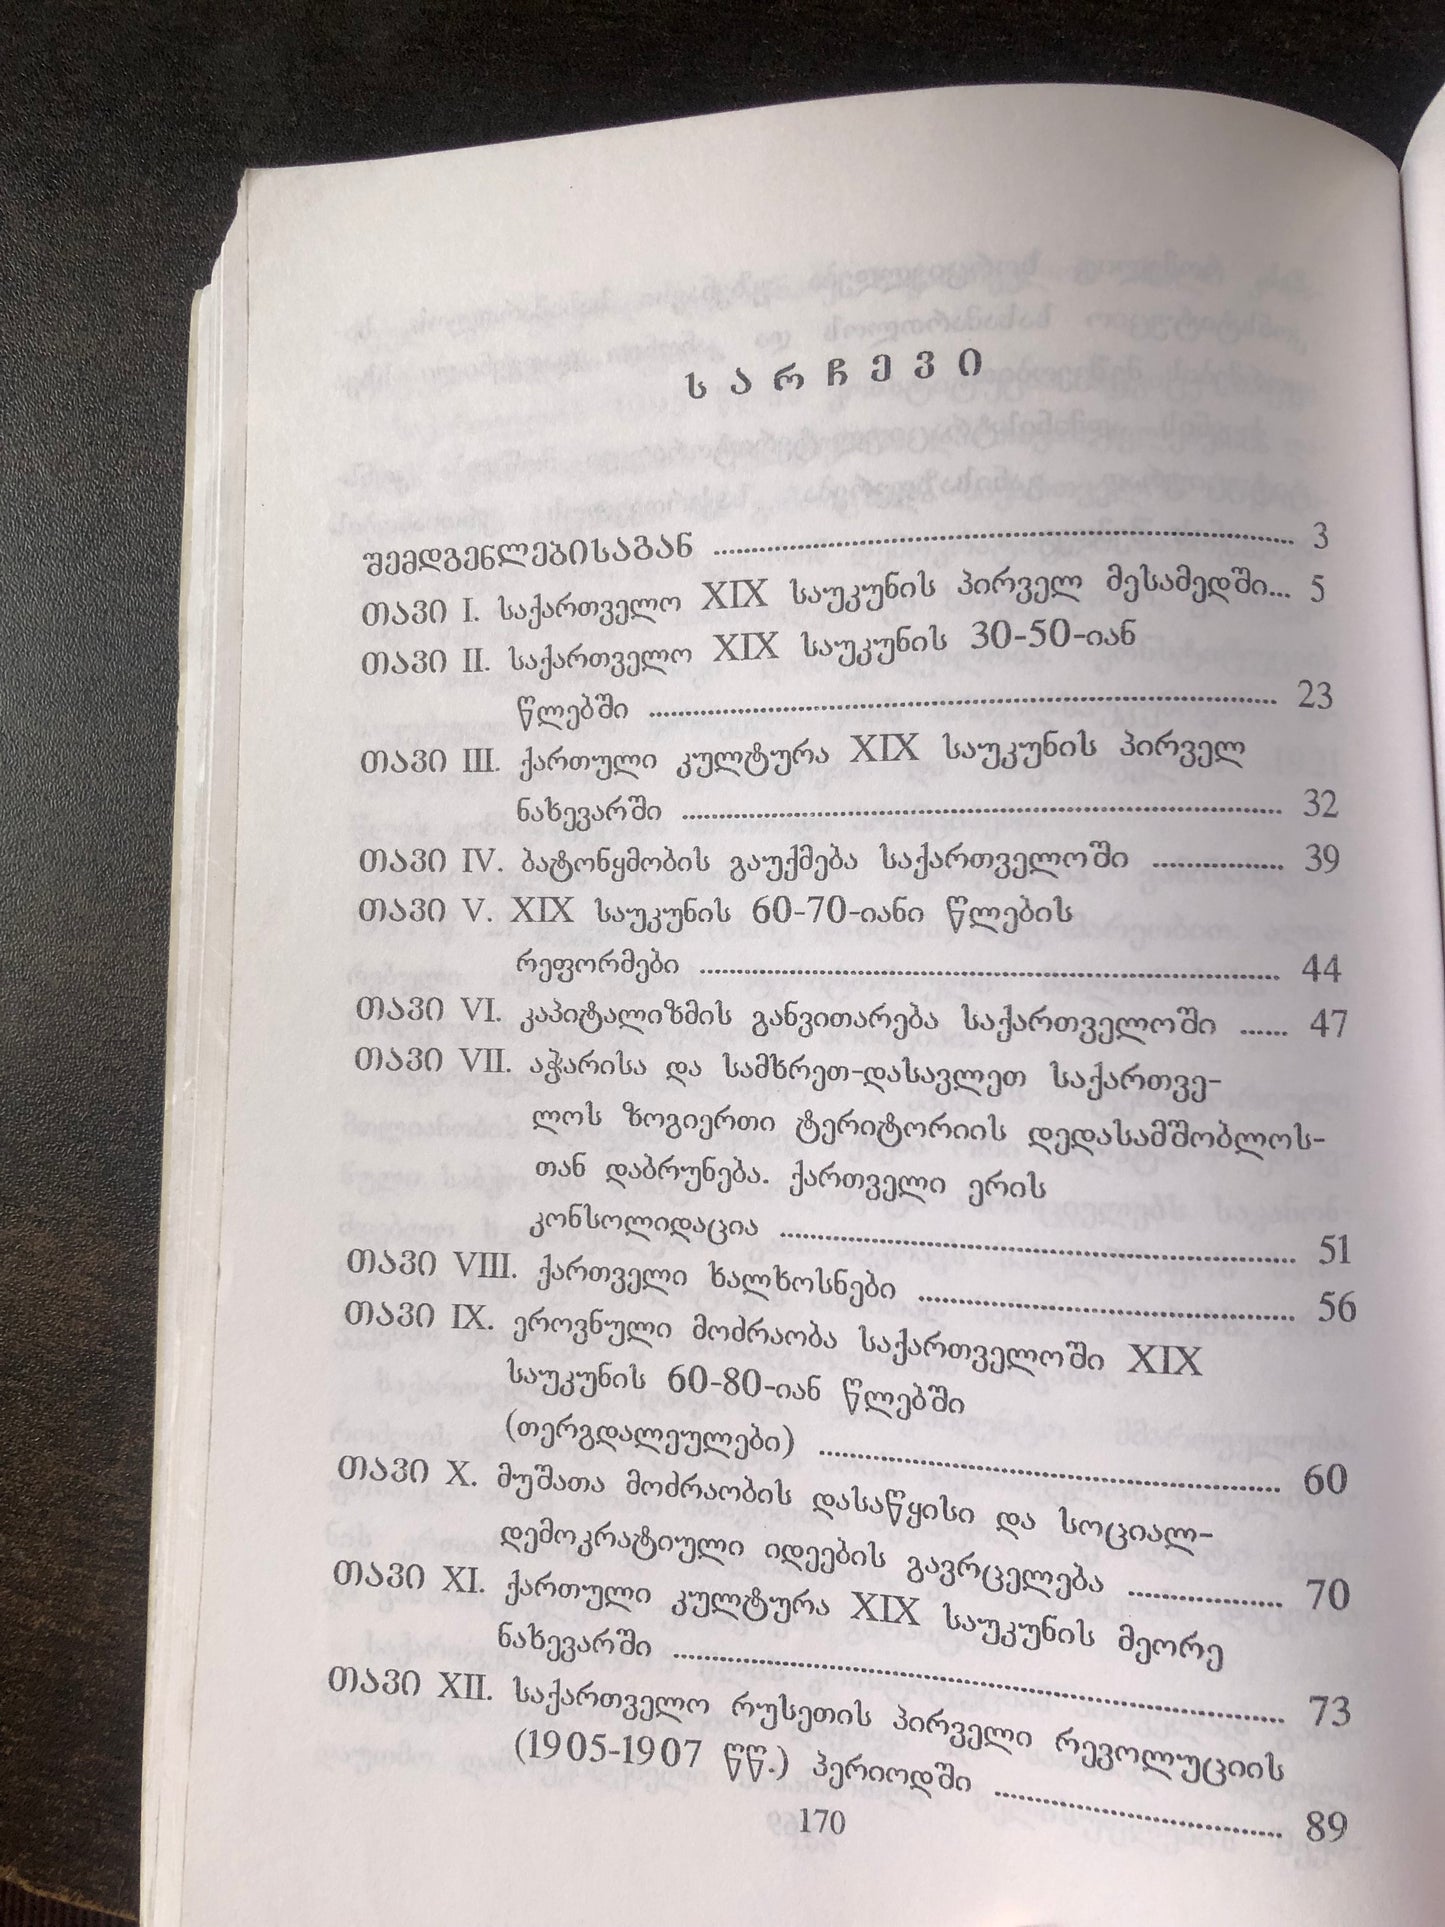 სარჩევი
შემდგენლებისაგან ........................ 3
თავი I. საქართველო XIX საუკუნის პირველ მესამედში... 5
თავი II. საქართველო XIX საუკუნის 30-50-იან
წლებში ........................ 23
თავი III. ქართული კულტურა XIX საუკუნის პირველ
ნახევარში ........................ 32
თავი IV. ბატონყმობის გაუქმება საქართველოში ........................ 39
თავი V. XIX საუკუნის 60-70-იანი წლების
რეფორმები ........................ 44
თავი VI. კაპიტალიზმის განვითარება საქართველოში ...... 47
თავი VII. აჭარისა და სამხრეთ-დასავლეთ საქართვე-
ლოს ზოგიერთი ტერიტორიის დედასამშობლოს-
თან დაბრუნება. ქართველი ერის
კონსოლიდაცია ........................ 51
თავი VIII. ქართველი ხალხოსნები ........................ 56
თავი IX. ეროვნული მოძრაობა საქართველოში XIX
საუკუნის 60-80-იან წლებში
(თერგდალეულები) ........................ 60
თავი X. მუშათა მოძრაობის დასაწყისი და სოციალ-
დემოკრატიული იდეების გავრცელება ........................ 70
თავი XI. ქართული კულტურა XIX საუკუნის მეორე
ნახევარში ........................ 73
თავი XII. საქართველო რუსეთის პირველი რევოლუციის
(1905-1907 წწ.) პერიოდში ........................ 89
170